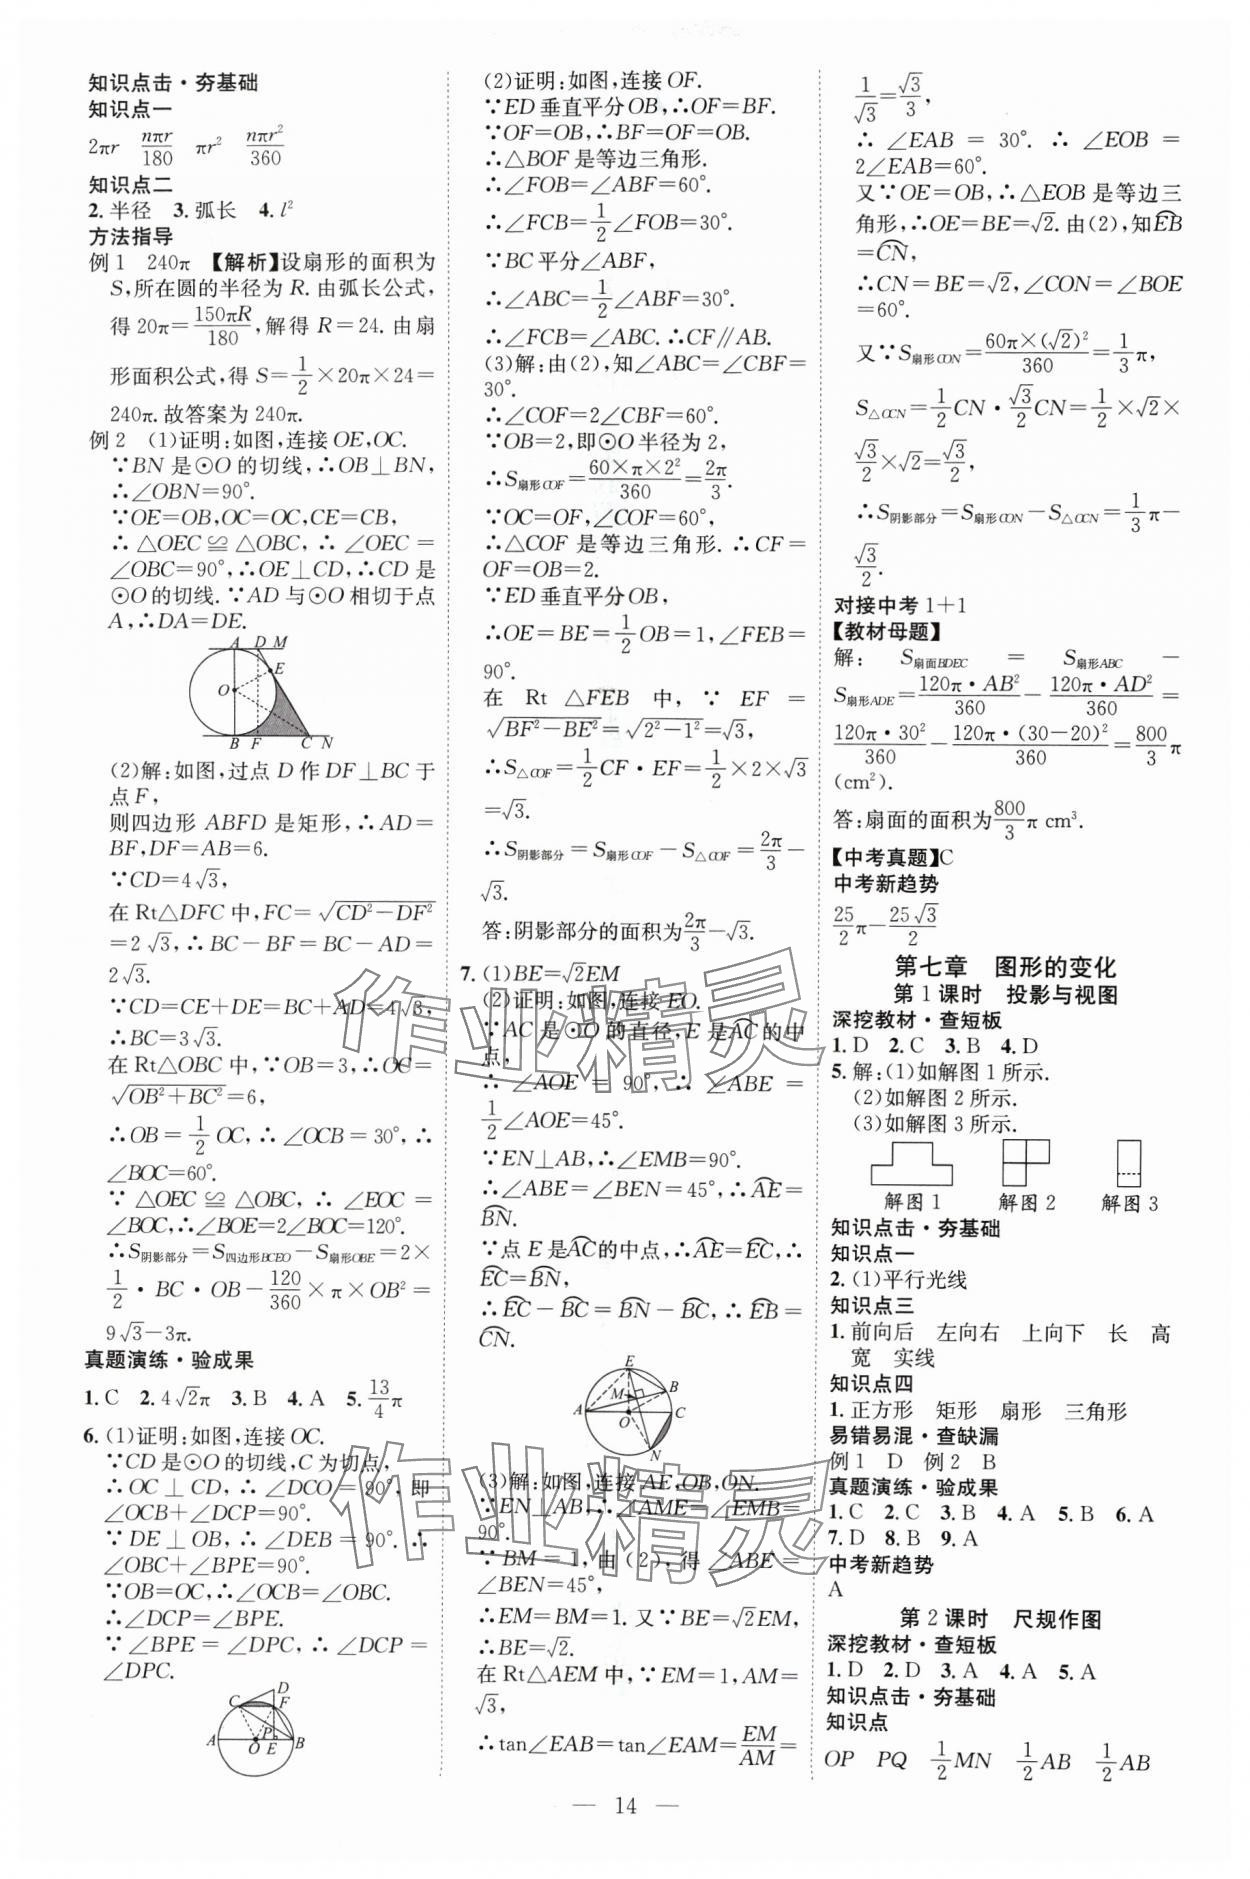 知识点击·夯基础
知识点一
2πr nπr/180 πr² nπr²/360
知识点二
2.半径 3.弧长 4.l²
方法指导
例1 240π 【解析】设扇形的面积为
S,所在圆的半径为R.由弧长公式,
得20π=150πR/180,解得R=24.由扇
形面积公式,得S=1/2×20π×24=
240π.故答案为240π.
例2 (1)证明:如图,连接OE,OC.
∵BN是⊙O的切线,∴OB⊥BN,
∴∠OBN=90°.
∵OE=OB,OC=OC,CE=CB,
∴△OEC≌△OBC,∴∠OEC=
∠OBC=90°,∴OE⊥CD,∴CD是
⊙O的切线.∵AD与⊙O相切于点
A,∴DA=DE.
A D M
E
O
B F C N
(2)解:如图,过点D作DF⊥BC于
点F,
则四边形ABFD是矩形,∴AD=
BF,DF=AB=6.
∵CD=4√3,
在Rt△DFC中,FC=√(CD²-DF²)
=2√3,∴BC-BF=BC-AD=
2√3.
∵CD=CE+DE=BC+AD=4√3,
∴BC=3√3.
在Rt△OBC中,∵OB=3,∴OC=
√(OB²+BC²)=6,
∴OB=1/2 OC,∴∠OCB=30°,∴
∠BOC=60°.
∵△OEC≌△OBC,∴∠EOC=
∠BOC,∴∠BOE=2∠BOC=120°.
∴S阴影部分=S四边形BCEO-S扇形OBE=2×
1/2·BC·OB-120/360×π×OB²=
9√3-3π.
真题演练·验成果
1.C 2.4√2π 3.B 4.A 5.13/4π
6.(1)证明:如图,连接OC.
∵CD是⊙O的切线,C为切点,
∴OC⊥CD,∴∠DCO=90°,即
∠OCB+∠DCP=90°.
∵DE⊥OB,∴∠DEB=90°.∴
∠OBC+∠BPE=90°.
∵OB=OC,∴∠OCB=∠OBC.
∴∠DCP=∠BPE.
∵∠BPE=∠DPC,∴∠DCP=
∠DPC.
D
C F
P
A O E B
(2)证明:如图,连接OF.
∵ED垂直平分OB,∴OF=BF.
∵OF=OB,∴BF=OF=OB.
∴△BOF是等边三角形.
∴∠FOB=∠ABF=60°.
∴∠FCB=1/2∠FOB=30°.
∵BC平分∠ABF,
∴∠ABC=1/2∠ABF=30°.
∴∠FCB=∠ABC.∴CF∥AB.
(3)解:由(2),知∠ABC=∠CBF=
30°.
∴∠COF=2∠CBF=60°.
∵OB=2,即⊙O半径为2,
∴S扇形COF=60×π×2²/360=2π/3.
∵OC=OF,∠COF=60°,
∴△COF是等边三角形.∴CF=
OF=OB=2.
∵ED垂直平分OB,
∴OE=BE=1/2OB=1,∠FEB=
90°.
在Rt△FEB中,∵EF=
√(BF²-BE²)=√(2²-1²)=√3,
∴S△COF=1/2CF·EF=1/2×2×√3
=√3.
∴S阴影部分=S扇形COF-S△COF=2π/3-
√3.
答:阴影部分的面积为2π/3-√3.
7.(1)BE=√2EM
(2)证明:如图,连接EO.
∵AC是⊙O的直径,E是⌒AC的中
点,
∴∠AOE=90°,∴∠ABE=
1/2∠AOE=45°.
∵EN⊥AB,∴∠EMB=90°.
∴∠ABE=∠BEN=45°,∴⌒AE=
⌒BN.
∵点E是⌒AC的中点,∴⌒AE=⌒EC,∴
⌒EC=⌒BN,
∴⌒EC-⌒BC=⌒BN-⌒BC,∴⌒EB=
⌒CN.
E
M B
A O C
N
(3)解:如图,连接AE,OB,ON.
∵EN⊥AB,∴∠AME=∠EMB=
90°.
∵BM=1,由(2),得∠ABE=
∠BEN=45°,
∴EM=BM=1.又∵BE=√2EM,
∴BE=√2.
在Rt△AEM中,∵EM=1,AM=
√3,
∴tan∠EAB=tan∠EAM=EM/AM=
1/√3=√3/3,
∴∠EAB=30°.∴∠EOB=
2∠EAB=60°.
又∵OE=OB,∴△EOB是等边三
角形,∴OE=BE=√2.由(2),知⌒EB
=⌒CN,
∴CN=BE=√2,∠CON=∠BOE
=60°.
又∵S扇形CON=60π×(√2)²/360=1/3π,
S△OCN=1/2CN·√3/2CN=1/2×√2×
√3/2×√2=√3/2,
∴S阴影部分=S扇形CON-S△OCN=1/3π-
√3/2.
对接中考1+1
【教材母题】
解:S扇面BDEC=S扇形ABC-
S扇形ADE=120π·AB²/360-120π·AD²/360=
120π·30²/360-120π·(30-20)²/360=800/3π
(cm²).
答:扇面的面积为800/3π cm³.
【中考真题】C
中考新趋势
25/2π-25√3/2
第七章 图形的变化
第1课时 投影与视图
深挖教材·查短板
1.D 2.C 3.B 4.D
5.解:(1)如解图1所示.
(2)如解图2所示.
(3)如解图3所示.
解图1 解图2 解图3
知识点击·夯基础
知识点一
2.(1)平行光线
知识点三
1.前向后 左向右 上向下 长 高
宽 实线
知识点四
1.正方形 矩形 扇形 三角形
易错易混·查缺漏
例1 D 例2 B
真题演练·验成果
1.C 2.C 3.B 4.A 5.B 6.A
7.D 8.B 9.A
中考新趋势
A
第2课时 尺规作图
深挖教材·查短板
1.D 2.D 3.A 4.A 5.A
知识点击·夯基础
知识点
OP PQ 1/2MN 1/2AB 1/2AB
— 14 —
作业精灵
作业精灵